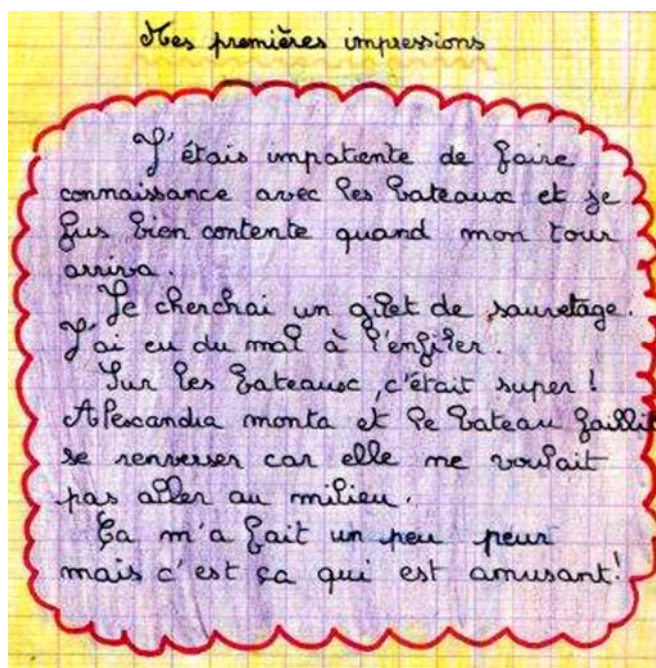 Mes premières impressions
J'étais impatiente de faire
connaissance avec les bateaux et je
fus bien contente quand mon tour
arriva.
Je cherchai un gilet de sauvetage.
J'ai eu du mal à l'enfiler.
Sur les bateaux, c'était super !
Alexandra monta et le bateau faillit
se renverser car elle ne voulait
pas aller au milieu.
Ça m'a fait un peu peur
mais c'est ça qui est amusant!